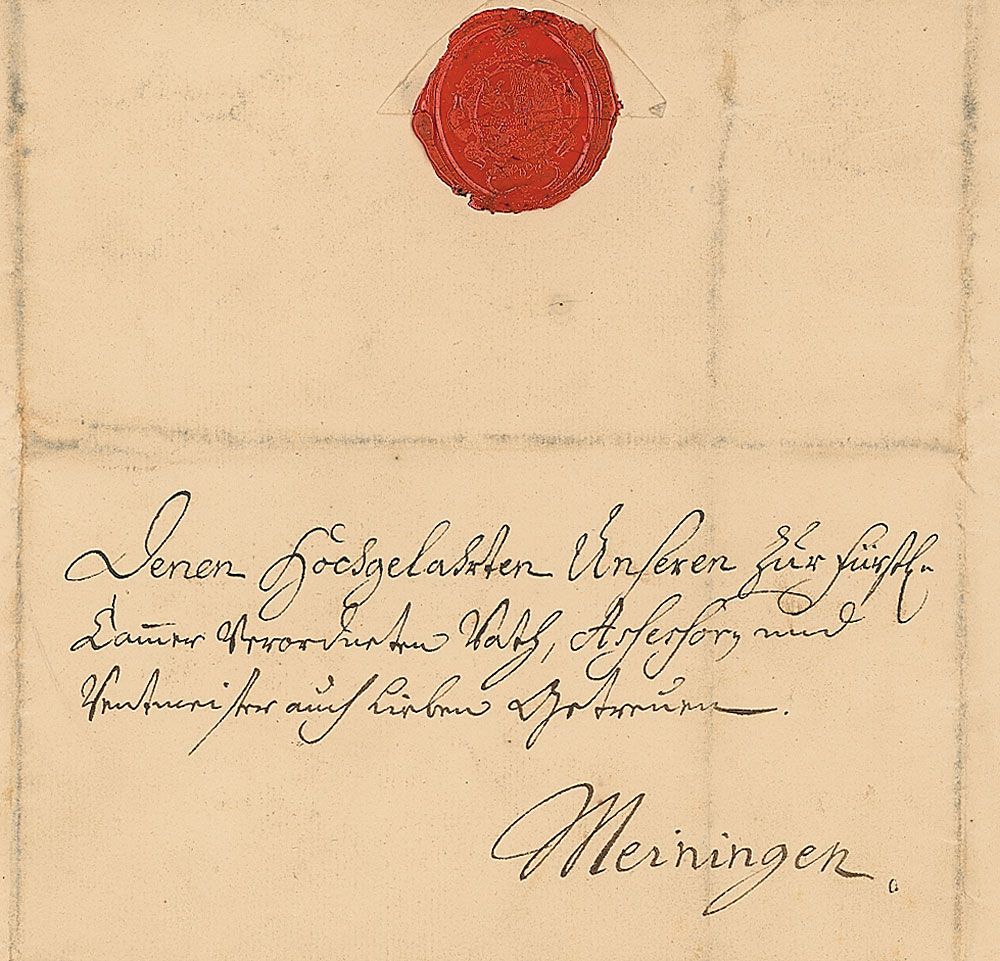 Denen Hochgelahrten Unseren zur Fürstl.
Cam̄er Verordneten Rath, Assessorn und
Rentmeister auch Lieben Getreuen.
Meiningen.